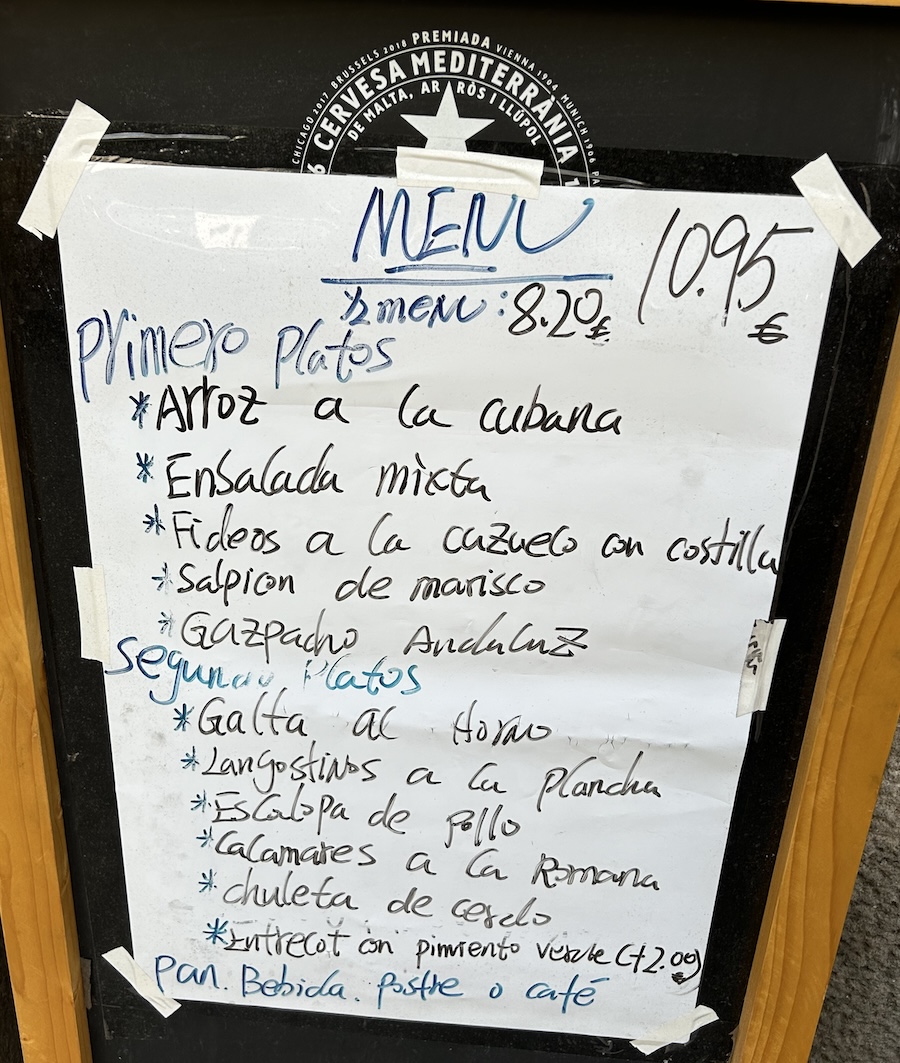 CHICAGO 2017 BRUSSELS 2018 PREMIADA VIENNA 1904 MUNICH 1906 PA
6 CERVESA MEDITERRÀNIA 1
DE MALTA, ARRÒS I LLÚPOL
MENU
10.95€
½ menu: 8.20€
Primero Platos
*Arroz a la cubana
*Ensalada mixta
*Fideos a la cazuelo con costilla
*Salpion de marisco
*Gazpacho Andaluz
Segundo Platos
*Galta al Horno
*Langostinos a la plancha
*Escalopa de pollo
*Calamares a la Romana
*chuleta de cerdo
*Entrecot con pimiento verde (+2.00€)
pan. Bebida. postre o café